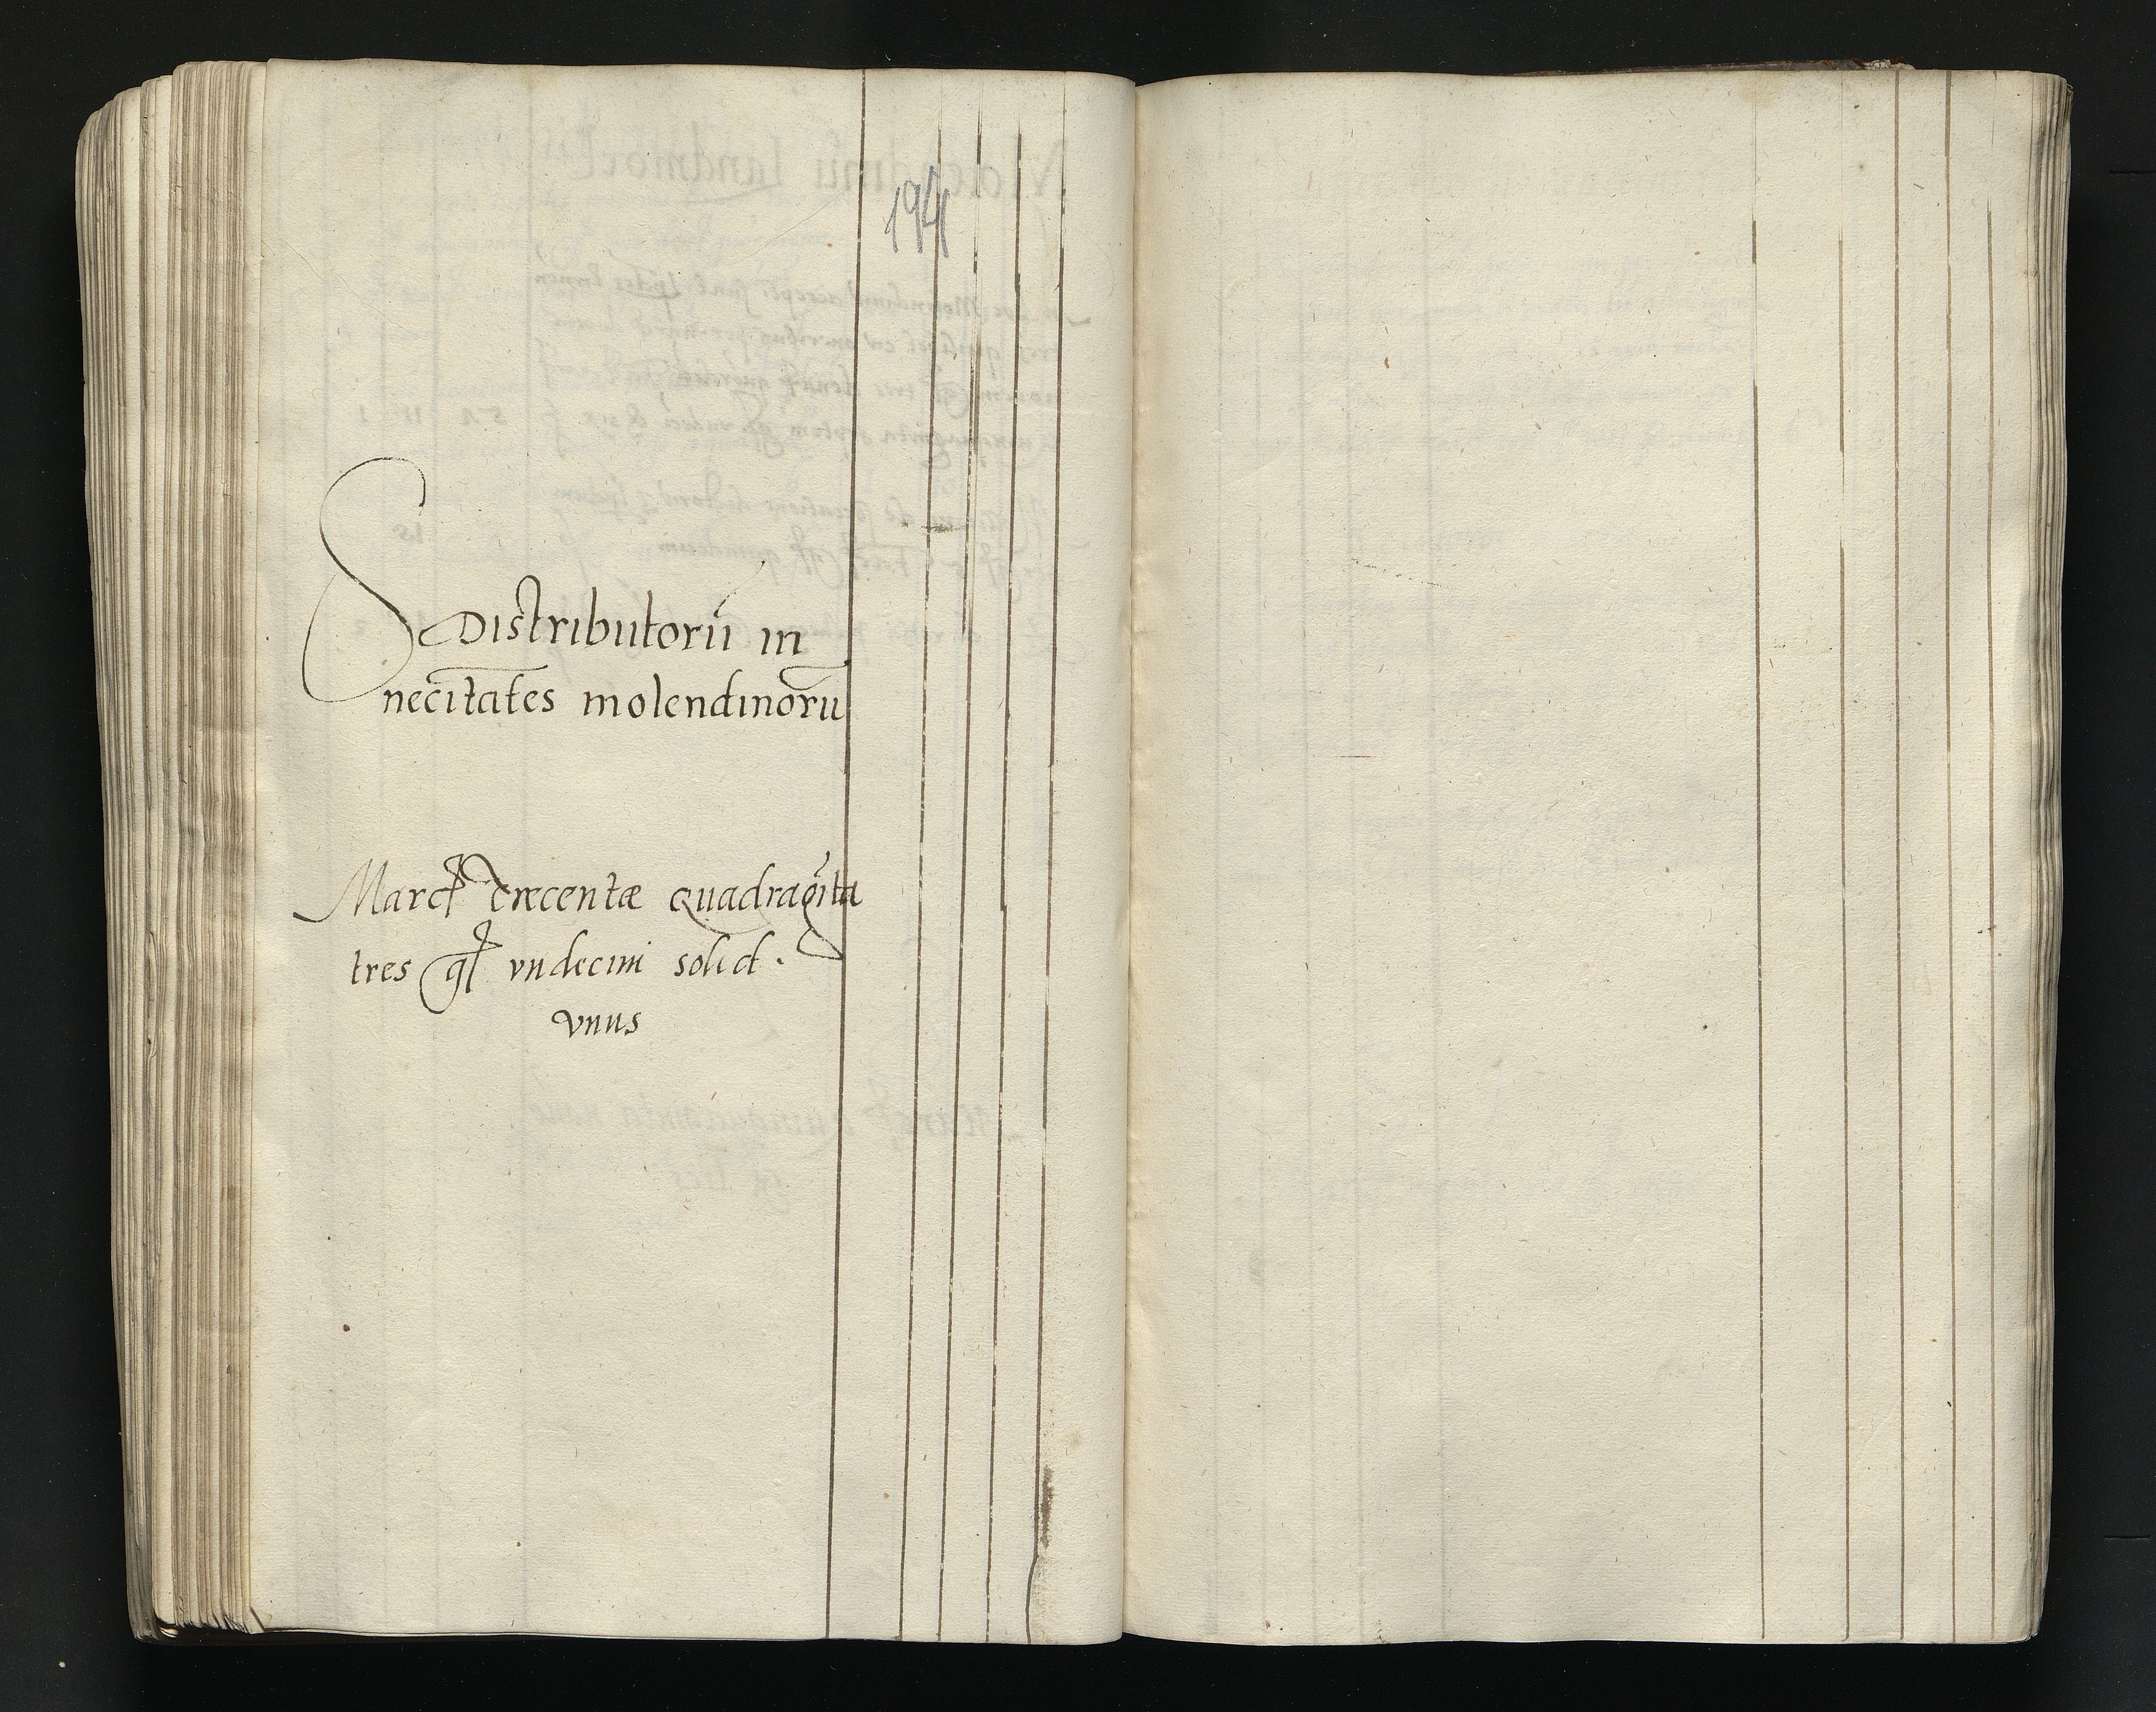 194
S Distributorū in
necītates molendinorū
Marcꝭ trecentæ quadragīta
tres gꝉ vndecim solid.
vnus